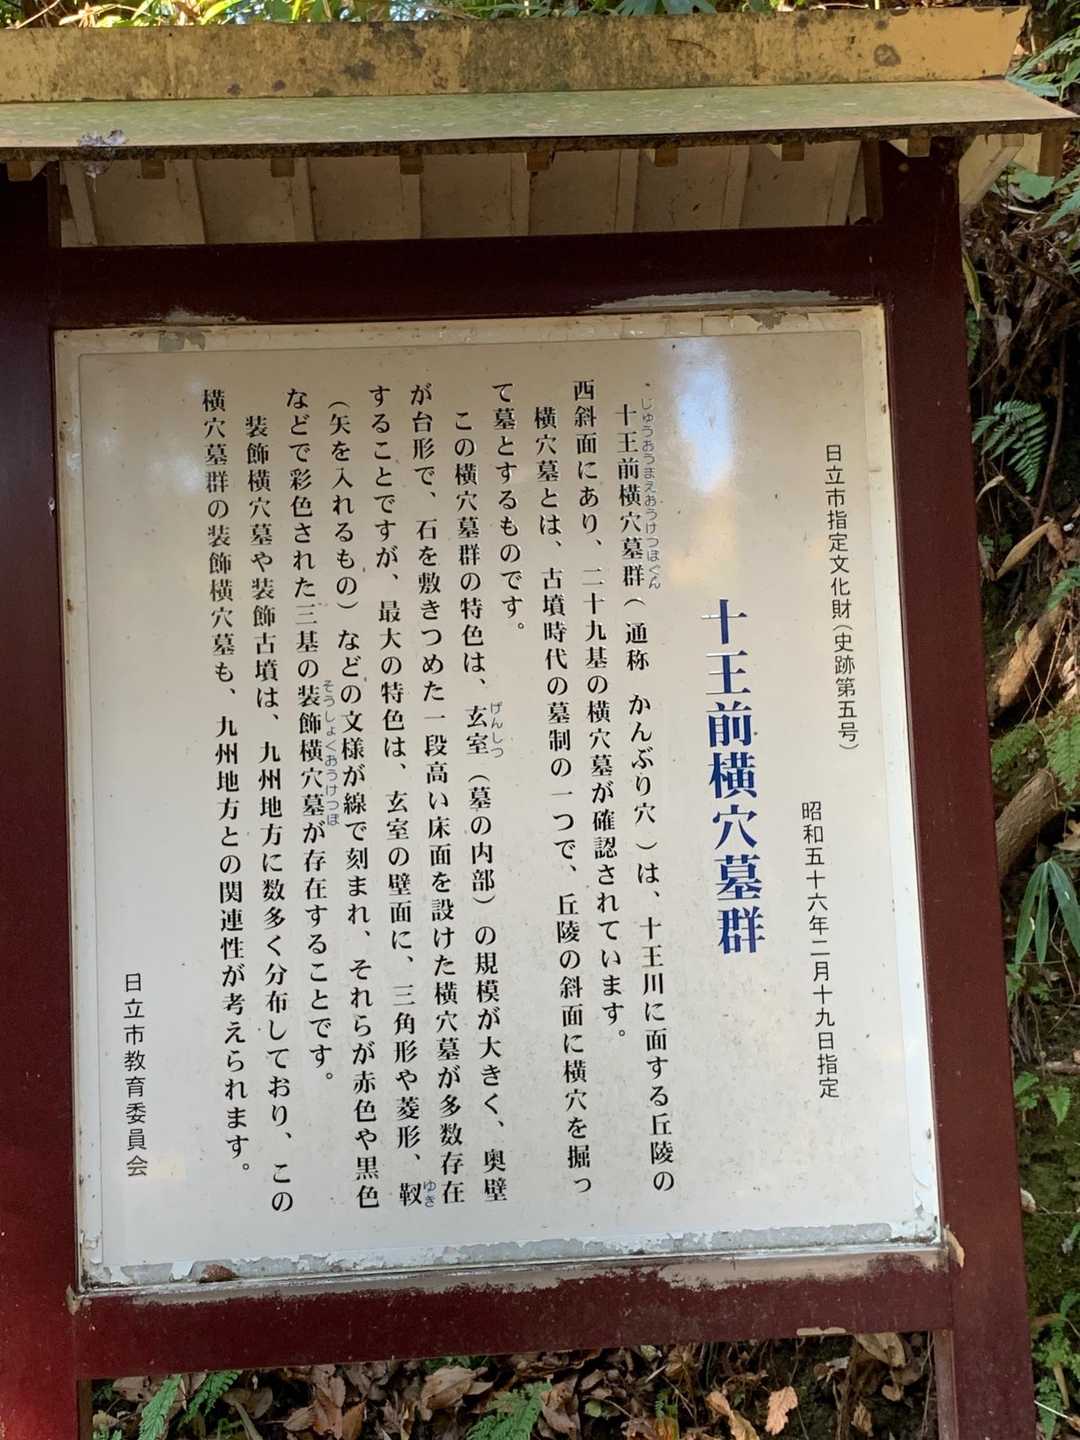 日立市指定文化財(史跡第五号)
昭和五十六年二月十九日指定
十王前横穴墓群
じゅうおうまえおうけつぼぐん
十王前横穴墓群(通称 かんぶり穴)は、十王川に面する丘陵の
西斜面にあり、二十九基の横穴墓が確認されています。
横穴墓とは、古墳時代の墓制の一つで、丘陵の斜面に横穴を掘っ
て墓とするものです。
げんしつ
この横穴墓群の特色は、玄室(墓の内部)の規模が大きく、奥壁
が台形で、石を敷きつめた一段高い床面を設けた横穴墓が多数存在
ゆき
することですが、最大の特色は、玄室の壁面に、三角形や菱形、靫
(矢を入れるもの)などの文様が線で刻まれ、それらが赤色や黒色
そうしょくおうけつぼ
などで彩色された三基の装飾横穴墓が存在することです。
装飾横穴墓や装飾古墳は、九州地方に数多く分布しており、この
横穴墓群の装飾横穴墓も、九州地方との関連性が考えられます。
日立市教育委員会